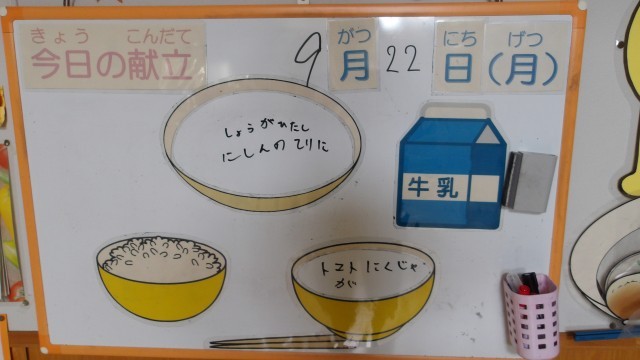 きょう こんだて
今日の献立
9月22日(月)
がつ にち げつ
しょうがわたし
にしんのてりに
牛乳
トマトにくじゃ
が